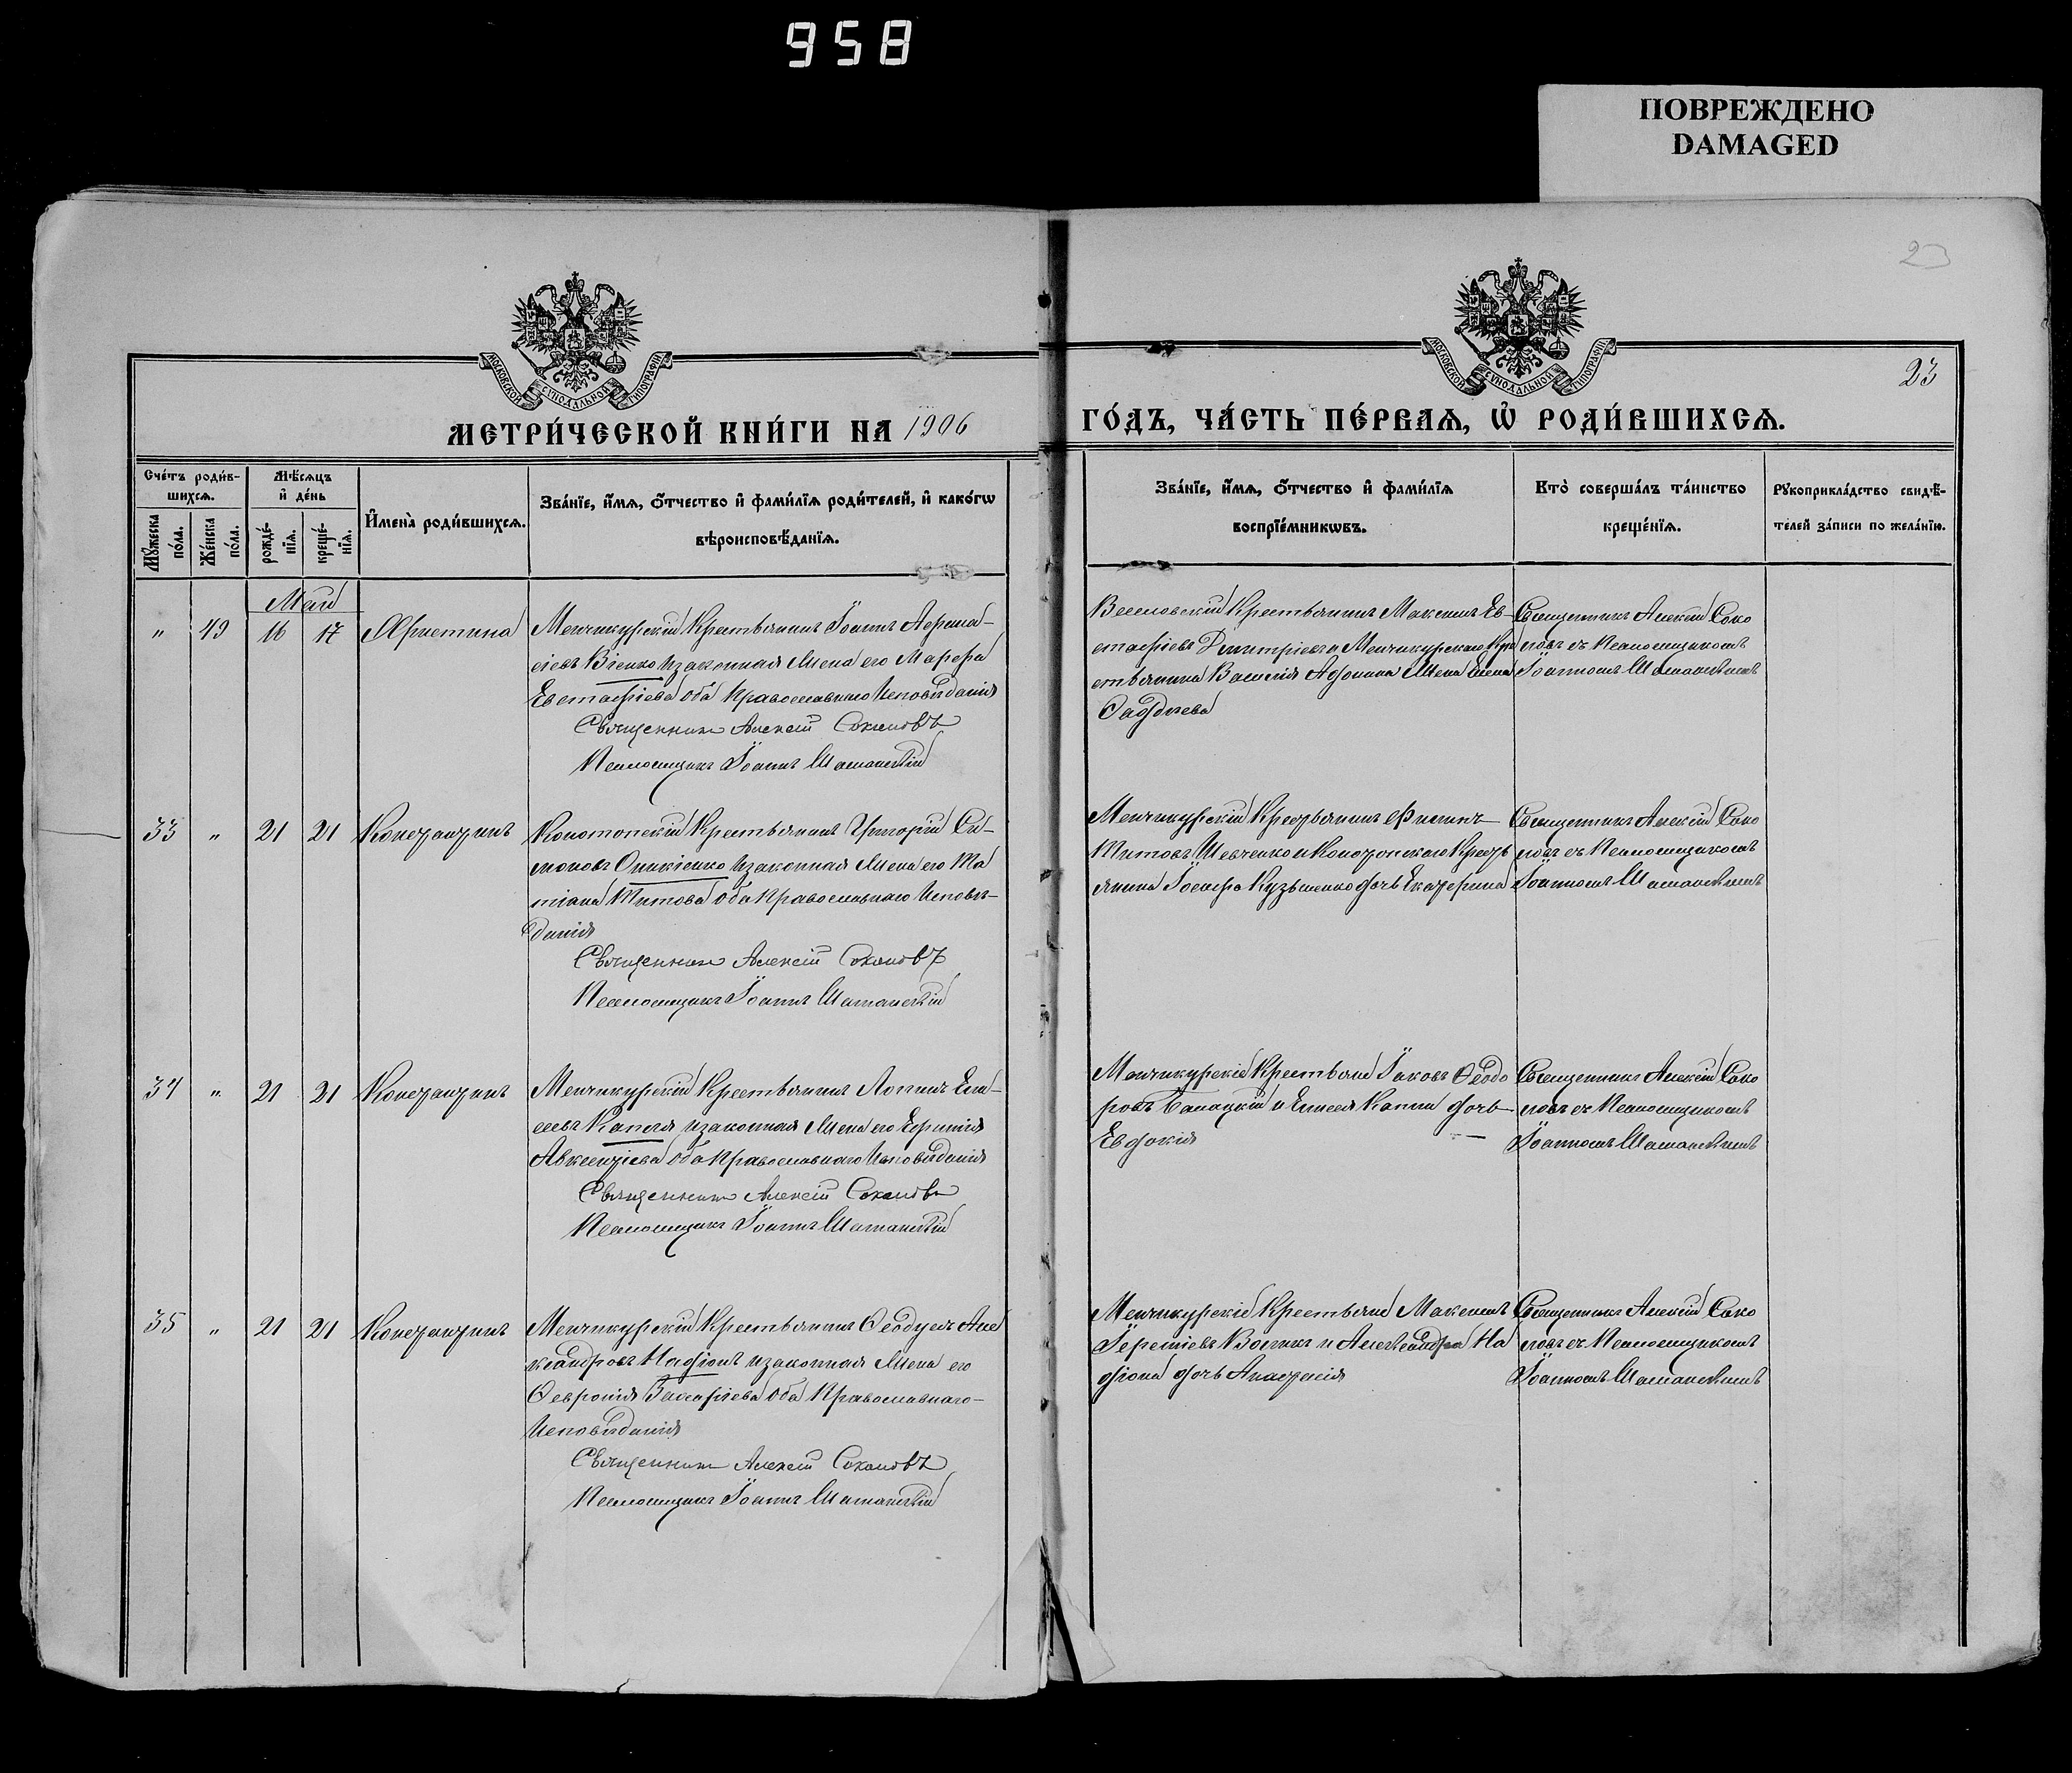 958
ПОВРЕЖДЕНО
DAMAGED
23
МОСКОВСКОЙ СУНОДАЛЬНОЙ ТИПОГРАФІИ
МОСКОВСКОЙ СУНОДАЛЬНОЙ ТИПОГРАФІИ
23
МЕТРИ́ЧЕСКОЙ КНИ́ГИ НА 1906
ГО́ДЪ, ЧА́СТЬ ПЕ́РВАѦ, Ѡ҆ РОДИ́ВШИХСѦ.
Сче́тъ роди́в-
шихсѧ.
Мѣ́сѧцъ
и҆ де́нь
Мꙋ́жеска
по́ла.
Же́нска
по́ла.
рожде́-
нїѧ.
креще́-
нїѧ.
И҆мена̀ роди́вшихсѧ.
Зва́нїе, и҆́мѧ, ѻ҆́тчество и҆ фами́лїѧ роди́телей, и҆ како́гѡ
вѣроисповѣ́данїѧ.
Зва́нїе, и҆́мѧ, ѻ҆́тчество и҆ фами́лїѧ
воспрїе́мникѡвъ.
Кто̀ соверша́лъ та́инство
креще́нїѧ.
Рꙋкоприкла́дство свидѣ́-
телей за́писи по жела́нїю.
Май
" 49 16 17 Христина
Менчикурскій Крестьянинъ Іоаннъ
Віенко и законная жена его Марфа
Евстафіева оба Православнаго Исповѣданія
Священник Алексій Соколовъ
Псаломщикъ Іоаннъ Шаманскій
Веселовскій Крестьянинъ Максимъ Ев-
стафіевъ Димитріевъ и Менчикурскаго Кре
стьянина Василія Афонина жена Елена
Фаддѣева
Священникъ Алексій Соко
ловъ съ Псаломщикомъ
Іоанномъ Шаманскимъ
33 " 21 21 Константинъ
Конотопскій Крестьянинъ Григорій Си-
моновъ Оникіенко и законная жена его Та
тіана Титова оба Православнаго Исповѣ-
данія
Священник Алексій Соколовъ
Псаломщикъ Іоаннъ Шаманскій
Менчикурскій Крестьянинъ Филиппъ
Титовъ Шевченко и Конотопскаго Кресть
янина Іосифа Кузьменко дочь Екатерина
Священникъ Алексій Соко
ловъ съ Псаломщикомъ
Іоанномъ Шаманскимъ
34 " 21 21 Константинъ
Менчикурскій Крестьянинъ Логинъ Ели-
сеевъ Капля и законная жена его Ефимія
Авксентіева оба Православнаго Исповѣданія
Священник Алексій Соколовъ
Псаломщикъ Іоаннъ Шаманскій
Менчикурскіе Крестьяне Іаковъ Ѳеодо
ровъ и Елисея Капли дочь
Евдокія
Священникъ Алексій Соко
ловъ съ Псаломщикомъ
Іоанномъ Шаманскимъ
35 " 21 21 Константинъ
Менчикурскій Крестьянинъ Ѳеодулъ Але
ксандровъ Надіонъ и законная жена его
Ѳевронія оба Православнаго
Исповѣданія
Священник Алексій Соколовъ
Псаломщикъ Іоаннъ Шаманскій
Менчикурскіе Крестьяне Максимъ
и Александра На
діона дочь Анастасія
Священникъ Алексій Соко
ловъ съ Псаломщикомъ
Іоанномъ Шаманскимъ